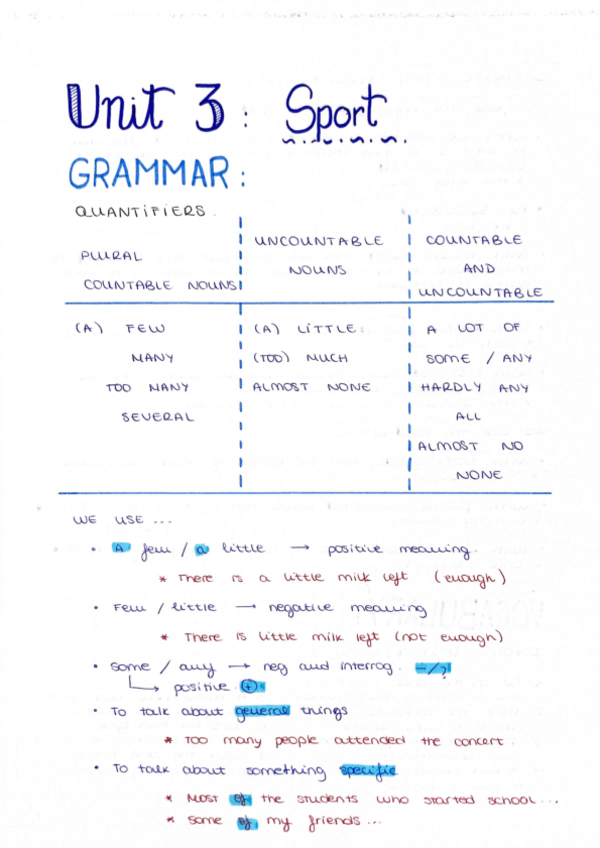 Unit 3 : Sport
GRAMMAR :
QUANTIFIERS.
PLURAL
COUNTABLE NOUNS
UNCOUNTABLE
NOUNS
COUNTABLE
AND
UNCOUNTABLE
(A) FEW
MANY
TOO MANY
SEVERAL
(A) LITTLE
(TOO) MUCH
ALMOST NONE
A LOT OF
SOME / ANY
HARDLY ANY
ALL
ALMOST NO
NONE
WE USE ...
• A few / a little → positive meaning.
* There is a little milk left (enough)
• Few / little → negative meaning
* There is little milk left (not enough)
• Some / any → neg and interrog. -/?
↳ positive +
• To talk about general things
* Too many people attended the concert.
• To talk about something specific
* Most of the students who started school...
* Some of my friends...